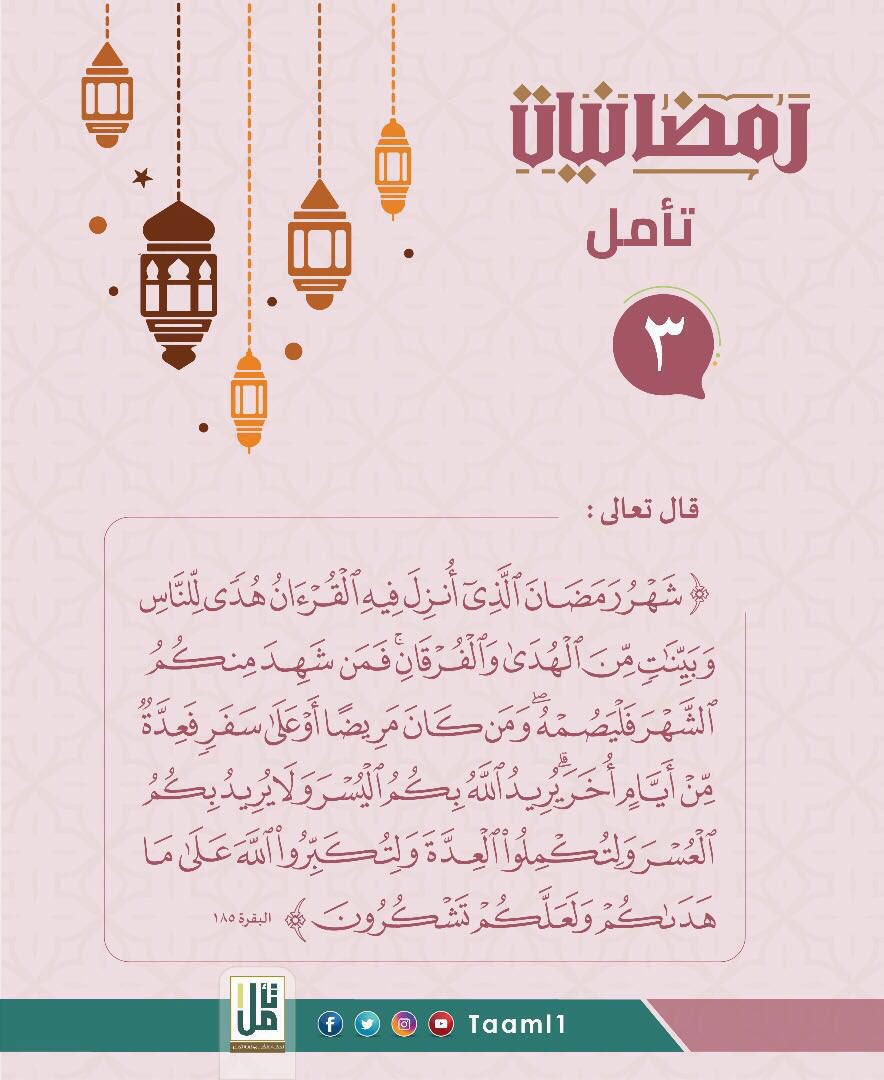 رمضانيات
تأمل
٣
قال تعالى :
﴿ شَهۡرُ رَمَضَانَ ٱلَّذِيٓ أُنزِلَ فِيهِ ٱلۡقُرۡءَانُ هُدٗى لِّلنَّاسِ
وَبَيِّنَٰتٖ مِّنَ ٱلۡهُدَىٰ وَٱلۡفُرۡقَانِۚ فَمَن شَهِدَ مِنكُمُ
ٱلشَّهۡرَ فَلۡيَصُمۡهُۖ وَمَن كَانَ مَرِيضًا أَوۡ عَلَىٰ سَفَرٖ فَعِدَّةٞ
مِّنۡ أَيَّامٍ أُخَرَۗ يُرِيدُ ٱللَّهُ بِكُمُ ٱلۡيُسۡرَ وَلَا يُرِيدُ بِكُمُ
ٱلۡعُسۡرَ وَلِتُكۡمِلُواْ ٱلۡعِدَّةَ وَلِتُكَبِّرُواْ ٱللَّهَ عَلَىٰ مَا
هَدَىٰكُمۡ وَلَعَلَّكُمۡ تَشۡكُرُونَ ﴾ البقرة ١٨٥
تأمل
Taaml1